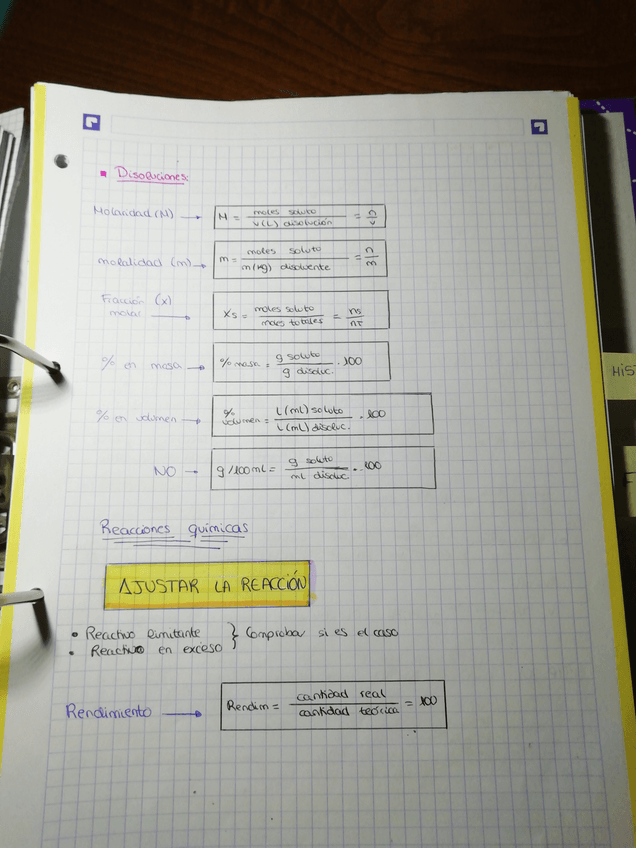 Disoluciones:
Molaridad (M) → M = moles soluto / V(L) disolución = n / v
molalidad (m) → m = moles soluto / m(kg) disolvente = n / m
Fracción (x) molar → Xs = moles soluto / moles totales = ns / nT
% en masa → % masa = g soluto / g disoluc. · 100
% en volumen → % volumen = L(mL) soluto / L(mL) disoluc. · 100
NO → g/100mL = g soluto / mL disoluc · 100
Reacciones químicas
AJUSTAR LA REACCIÓN
• Reactivo limitante } Comprobar si es el caso
• Reactivo en exceso
Rendimiento → Rendim = cantidad real / cantidad teórica = 100
HIST